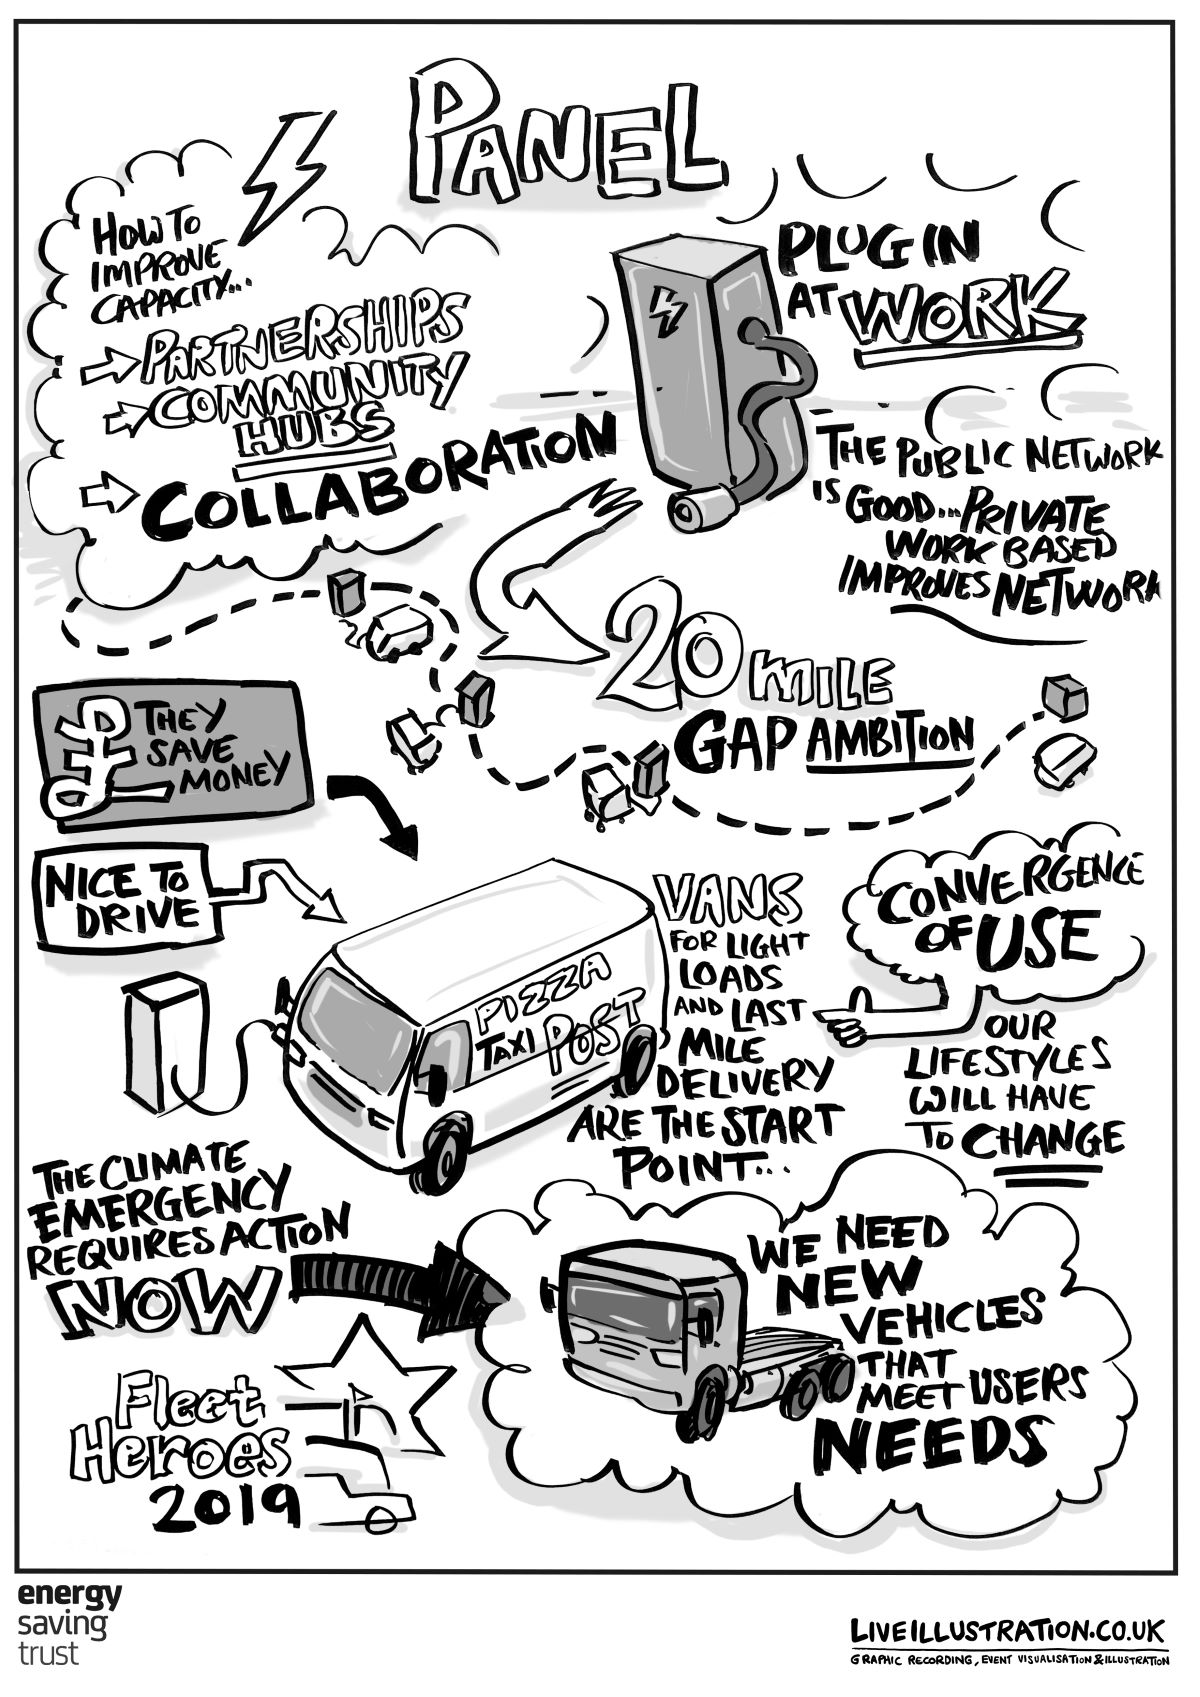 PANEL
HOW TO
IMPROVE
CAPACITY...
PARTNERSHIPS
COMMUNITY
HUBS
COLLABORATION
PLUG IN
AT WORK
THE PUBLIC NETWORK
IS GOOD... PRIVATE
WORK BASED
IMPROVES NETWORK
20 MILE
GAP AMBITION
£ THEY
SAVE
MONEY
NICE TO
DRIVE
PIZZA
TAXI POST
VANS
FOR LIGHT
LOADS
AND LAST
MILE
DELIVERY
ARE THE START
POINT...
CONVERGENCE
OF USE
OUR
LIFESTYLES
WILL HAVE
TO CHANGE
THE CLIMATE
EMERGENCY
REQUIRES ACTION
NOW
WE NEED
NEW
VEHICLES
THAT
MEET USERS
NEEDS
Fleet
Heroes
2019
energy
saving
trust
LIVEILLUSTRATION.CO.UK
GRAPHIC RECORDING, EVENT VISUALISATION & ILLUSTRATION